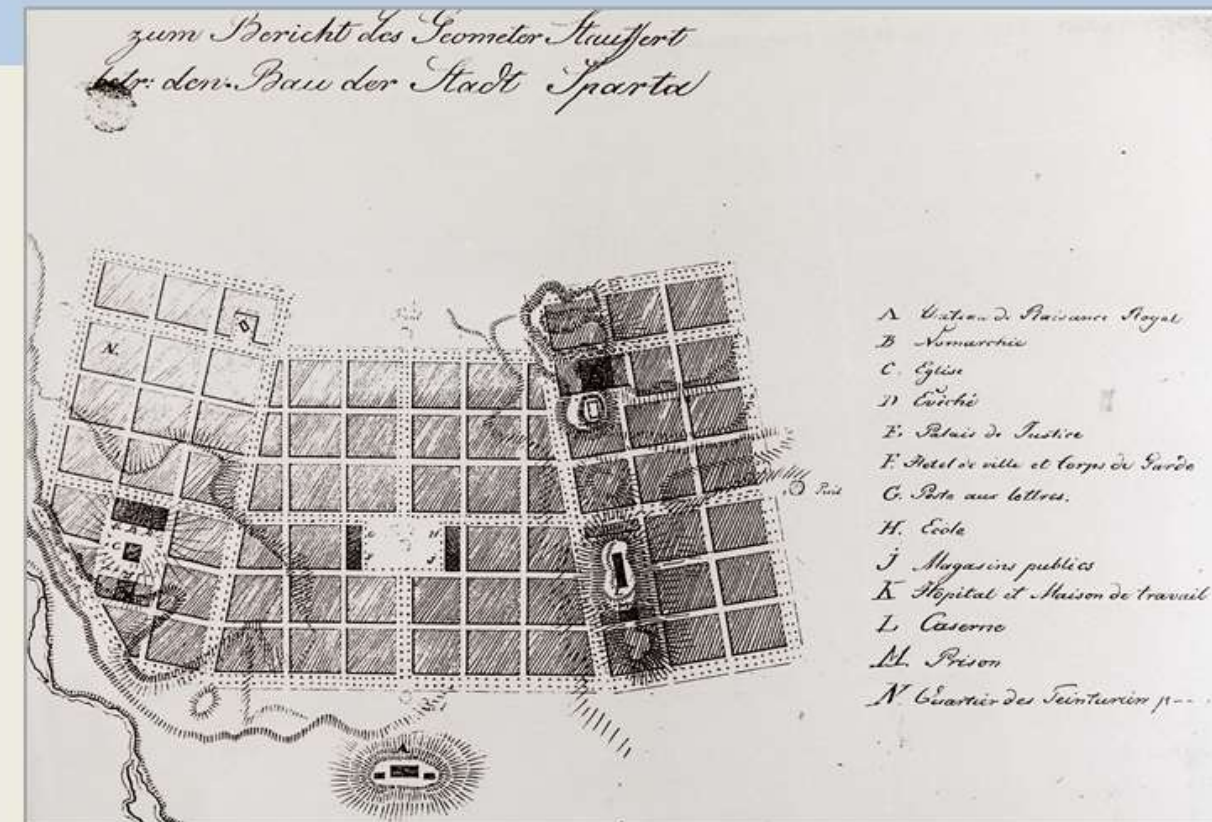 zum Bericht des Geometer Stauffert
betr: den Bau der Stadt Sparta
N.
Puits
A
C
H
J
A Château de Plaisance Royal
B Nomarchie
C. Eglise
D Evêché
E. Palais de Justice
F. Hotel de ville et Corps de Garde
G. Poste aux lettres.
H. Ecole
J Magasins publics
K Hôpital et Maison de travail
L Caserne
M Prison
N. Quartier des Teinturiers